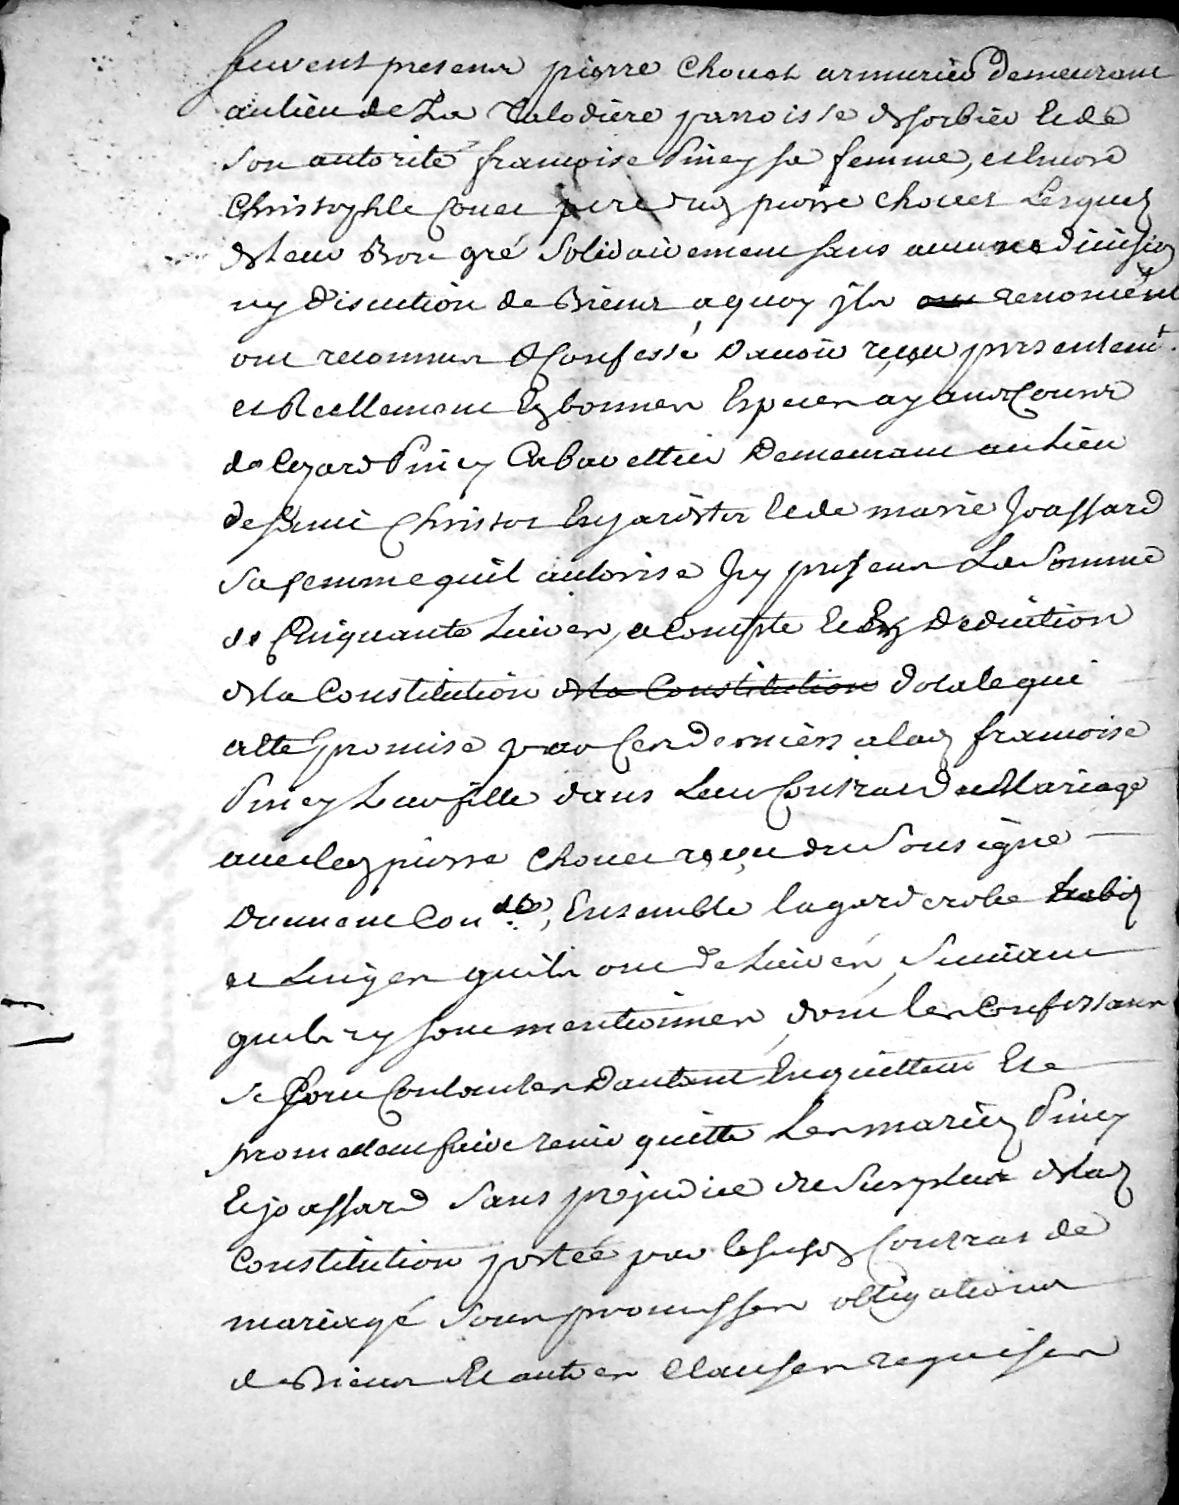 furent presens pierre Chouet armurier demeurant
au lieu de La Talodiere parroisse de sorbier et de
son autorité francoise Piney sa femme, et
Christophle Couet pere dud pierre chouet Lesquels
de leur Bon gré solidairement sans aucune division
ny discution de Biens a quoy ils renoncent
ont reconnus & Confessé d'avoir reçeu presentemt.
et Reellement En bonnes Especes ayant Cours
de Piney Cabarettier Demeurant au Lieu
de saint Christot En jarest et de marie Joassard
sa femme quil autorise Icy presens La somme
de Cinquante Livres, a compte et En deduction
de la Constitution de la Constitution dotale qui
a été promise par Ces derniers a lad francoise
Piney Leur fille dans Leur Contract de Mariage
avec led pierre Chouet reçeu du sousigné
Ensemble la garderobe habits
et Linges quils ont delivrés, suivant
quils y sont mentionnés, dont les Confessants
se sont Contentés d'autant En quittent Et
promettent faire tenir quitte Les mariés Piney
Et joassard sans prejudice du surplus de lad
Constitution portée par le susd Contrat de
mariage sous promesses obligations
de Biens Et autres Clauses requises